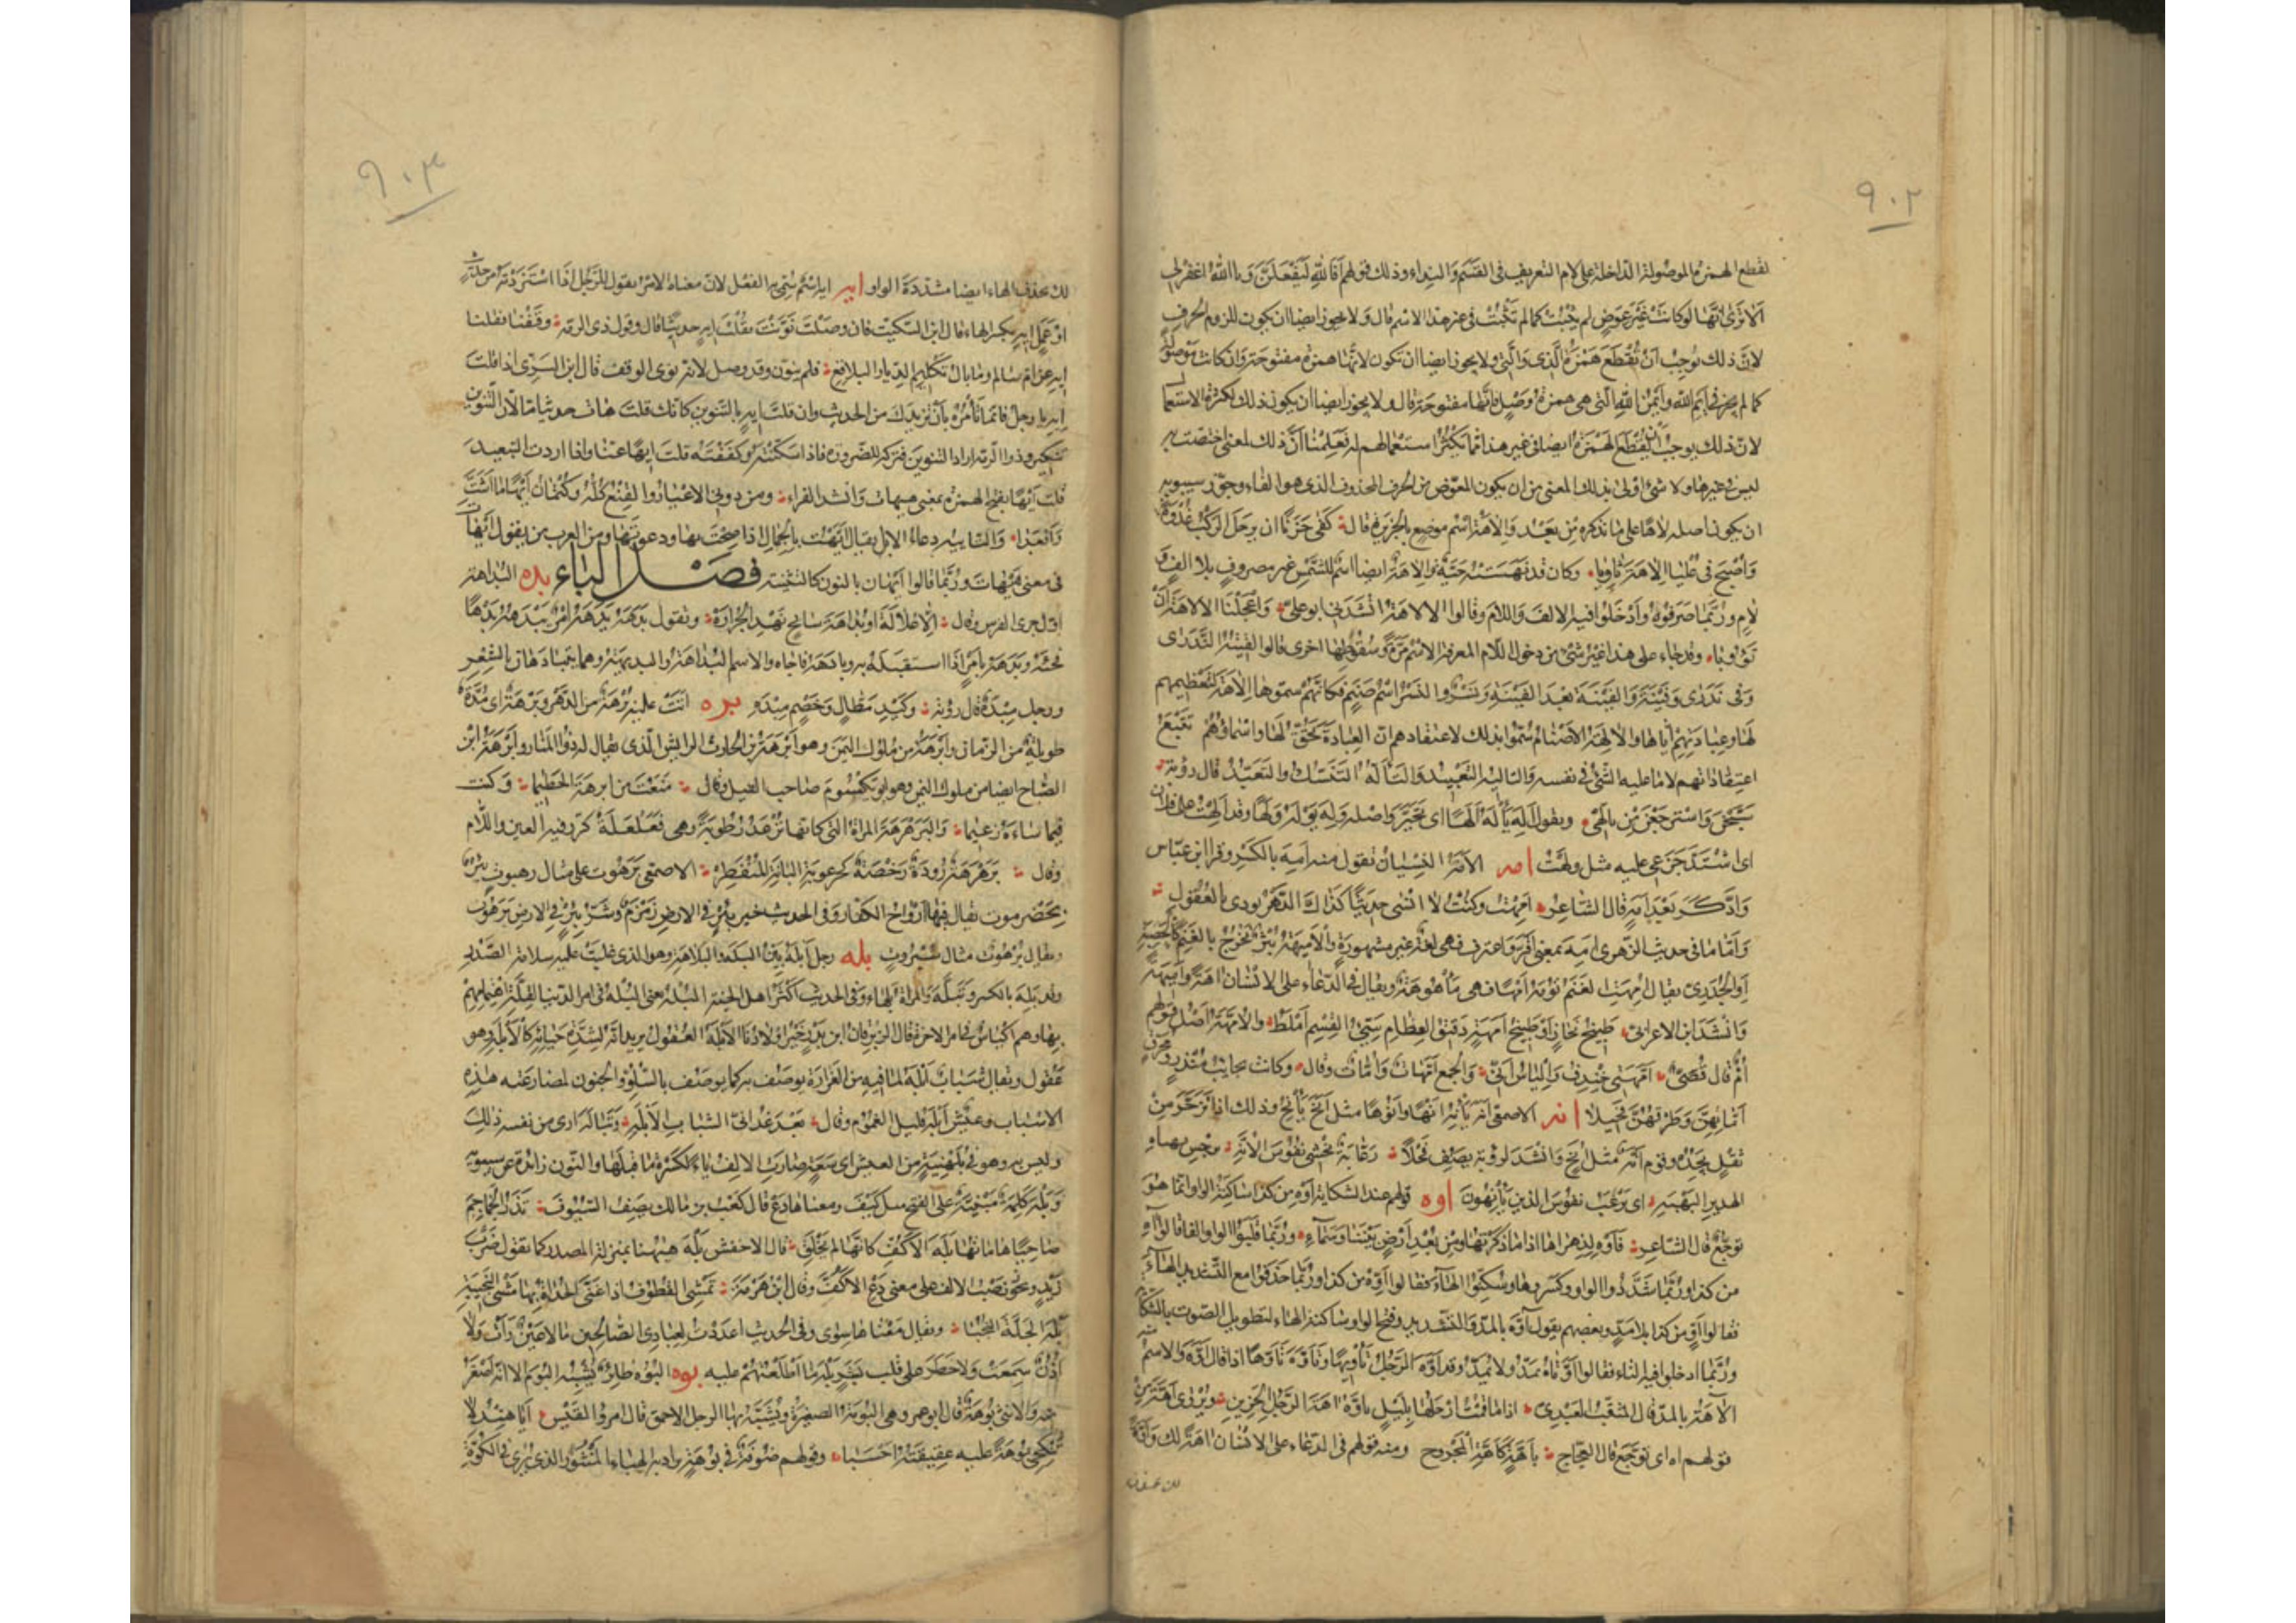 ٩٠٢
لقطع الهمزة الموصولة الداخلة على لام التعريف فى القسم والنداء وذلك قولهم أفالله ليفعلن ويا الله اغفر لى
ألا ترى أنها لو كانت غير عوض لم تثبت كما لم تثبت فى غير هذا الاسم قال ولا يجوز ايضا ان يكون للزوم الحرف
لان ذلك يوجب ان تقطع همزة الذى والتى ولا يجوز ايضا ان تكون لانها همزة مفتوحة وان كانت موصولة
كما لم يجز فى ايم الله وايمن الله التى هى همزة وصل فانها مفتوحة قال ولا يجوز ايضا ان يكون ذلك لكثرة الاستعمال
لان ذلك يوجب ان تقطع الهمزة ايضا فى غير هذا مما يكثر استعمالهم له فعلمنا ان ذلك لمعنى اختصت به
ليس فى غيرها ولا شئ اولى بذلك المعنى من ان يكون المعوض من الحرف المحذوف الذى هو الفاء وجوز سيبويه
ان يكون اصله لاها على ما نذكره من بعد والاهة اسم موضع بالجزيرة قال كفى حزنا ان يرحل الركب غدوة
واصبح فى عليا الاهة ثاويا وكان قد نهسته حية والاهة ايضا اسم للشمس غير مصروف بلا الف و
لام وربما صرفوه وادخلوا فيه الالف واللام وقالوا الالاهة انشدنى ابو على واعجلنا الالاهة ان
تؤوبا وقد جاء على هذا غير شئ من دخول اللام المعرفة الاسم مرة وسقوطها اخرى قالوا لقيته الندرى
وفى ندرى وفينة والفينة بعد الفينة ونسر والنسر اسم صنم فكانهم سموها الاهة لتعظيمهم
لها وعبادتهم اياها والالهة الاصنام سموا بذلك لاعتقادهم ان العبادة تحق لها واسماؤهم تتبع
اعتقاداتهم لا ما عليه الشئ فى نفسه والتاليه التعبيد والتأله التنسك والتعبد قال رؤبة
سبحن واسترجعن من تألهى وتقول اله يأله الها اى تحير واصله وله يوله ولها وقد الهت على فلان
اى اشتد جزعى عليه مثل ولهت امه الامه النسيان تقول منه امه بالكسر وقرا ابن عباس
وادكر بعد امه قال الشاعر امهت وكنت لا انسى حديثا كذاك الدهر يودى بالعقول
واما ما فى حديث الزهرى امه بمعنى اقر واعترف فهى لغة غير مشهورة والاميهة بثر تخرج بالغنم كالحصبة
او الجدرى يقال امهت الغنم تؤمه امها فهى مأموهة ويقال فى الدعاء على الانسان اهة واميهة
وانشد ابن الاعرابى طبيخ نحاز او طبيخ اميهة دقيق العظام سيئ القسم املط والامهة اصل قولهم
ام قال قصى امهتى خندف والياس ابى والجمع امهات وامات وقال وكانت نجائب منذر ومحرق
اماتهن وطرقهن فحيلا انه الاصمعى انه يأنه انها وانوها مثل انح يأنح وذلك اذا تزحر من
ثقل يجده وقوم انه مثل انح وانشد لرؤبة يصف فحلا رعابة يخشى نفوس الانه برجس بهباه
الهدير البهبه اى يرعب نفوس الذين يأنهون اوه قولهم عند الشكاية اوه من كذا ساكنة الواو انما هو
توجع قال الشاعر فاوه لذكراها اذا ما ذكرتها ومن بعد ارض بيننا وسماء وربما قلبوا الواو الفا فقالوا اه
من كذا وربما شددوا الواو وكسروها وسكنوا الهاء فقالوا اوه من كذا وربما حذفوا مع التشديد الهاء
فقالوا او من كذا بلا مد وبعضهم يقول اوه بالمد والتشديد وفتح الواو ساكنة الهاء لتطويل الصوت بالشكاية
وربما ادخلوا فيه التاء فقالوا اوتاه يمد ولا يمد وقد اوه الرجل تأويها وتاوه تاوها اذا قال اوه والاسم منه
الآهة بالمد قال المثقب العبدى اذا ما قمت ارحلها بليل تاوه اهة الرجل الحزين ويروى اهة من
قولهم اه اى توجع قال العجاج باهة كاهة المجروح ومنه قولهم فى الدعاء على الانسان اهة لك واوة
لك بحذف
٩٠٣
لك بحذف الهاء ايضا مشددة الواو ايه ايه اسم سمى به الفعل لان معناه الامر تقول للرجل اذا استزدته من حديث
او عمل ايه بكسر الهاء قال ابن السكيت فان وصلت نونت فقلت ايه حديثا قال وقول ذى الرمة وقفنا فقلنا
ايه عن ام سالم وما بال تكليم الديار البلاقع فلم ينون وقد وصل لانه نوى الوقف قال ابن السرى اذا قلت
ايه يا رجل فانما تأمره بان يزيدك من الحديث وان قلت ايه بالتنوين كانك قلت هات حديثا ما لان التنوين
تنكير وذو الرمة اراد التنوين فتركه للضرورة فاذا اسكته وكففته قلت ايها عنا واذا اردت التبعيد
قلت ايها بفتح الهمزة بمعنى هيهات وانشد الفراء ومن دونى الاعيار والقنع كله وكتمان ايها ما اشت
وابعدا والتاييه دعاء الابل يقال ايهت بالجمال اذا صحت بها ودعوتها ومن العرب من يقول ايهات
فى معنى هيهات وربما قالوا ايهان بالنون كالتثنية فصل الباء بده البداهة
اول جرى الفرس وقال الا علالة او بداهة سابح نهد الجزارة وتقول بدهه يبدهه امر يبدهه بدها
فجئه وبدهه بامر اذا استقبله به وبادهه فاجاه والاسم البداهة والبديهة وهما يتبادهان بالشعر
ورجل مبده قال رؤبة وكيد مطال وخصم مبده بره اتت عليه برهة من الدهر وبرهة اى مدة
طويلة من الزمان وابرهة من ملوك اليمن وهو ابرهة بن الحارث الرايش الذى يقال له ذو المنار وابرهة ابن
الصباح ايضا من ملوك اليمن وهو ابو يكسوم صاحب الفيل وقال منعت من ابرهة الحطيما وكنت
فيما ساءه زعيما والبرهرهة المراة التى كانها ترعد رطوبة وهى فعلعلة كرر فيه العين واللام
وقال برهرهة رودة رخصة كخرعوبة البانة المنفطر الاصمعى برهوت على مثال رهبوت بئر
بحضرموت يقال فيها ارواح الكفار وفى الحديث خير بئر فى الارض زمزم وشر بئر فى الارض برهوت
ويقال برهوت مثال سبروت بله رجل ابله بين البله والبلاهة وهو الذى غلبت عليه سلامة الصدر
وقد بله بالكسر وتبله والمراة بلهاء وفى الحديث اكثر اهل الجنة البله يعنى البله فى امر الدنيا لقلة اهتمامهم
بها وهم اكياس فى امر الاخرة قال الزبرقان ابن بدر خير اولادنا الابله العقول يريد انه لشدة حيائه كالابله وهو
عقول ويقال شباب ابله لما فيه من الغرارة يوصف به كما يوصف بالسلو والجنون لمضارعته هذه
الاسباب وعيش ابله قليل الغموم وقال بعد غدانى الشباب الابله وتباله ارى من نفسه ذلك
وليس به وهو فى بلهنية من العيش اى سعة صارت الالف ياء لكسرة ما قبلها والنون زائدة عن سيبويه
وبله كلمة مبنية على الفتح مثل كيف ومعناها دع قال كعب بن مالك يصف السيوف تذر الجماجم
ضاحيا هاماتها بله الاكف كانها لم تخلق قال الاخفش بله ههنا بمنزلة المصدر كما تقول ضرب
زيد ويجوز نصب الاكف على معنى دع الاكف وقال ابن هرمة تمشى القطوف اذا غنى الحداة بها مشى النجيبة
بله الجلة النجبا ويقال معناها سوى وفى الحديث اعددت لعبادى الصالحين ما لا عين رات ولا
اذن سمعت ولا خطر على قلب بشر بله ما اطلعتهم عليه بوه البوه طائر يشبه البوم الا انه اصغر
منه والانثى بوهة قال ابو عمرو هى البومة الصغيرة ويشبه بها الرجل الاحمق قال امرؤ القيس ايا هند لا
تنكحى بوهة عليه عقيقته احسبا وقولهم صوفة فى بوهة يراد به الهباء المنثور الذى يرى فى الكوة